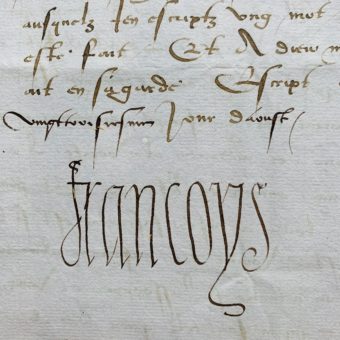 ausquelz Jen escriptz ung mot
este fait Et A dieu
ait en sa garde Escript
vingttroisiesme Jour daoust /
francoys